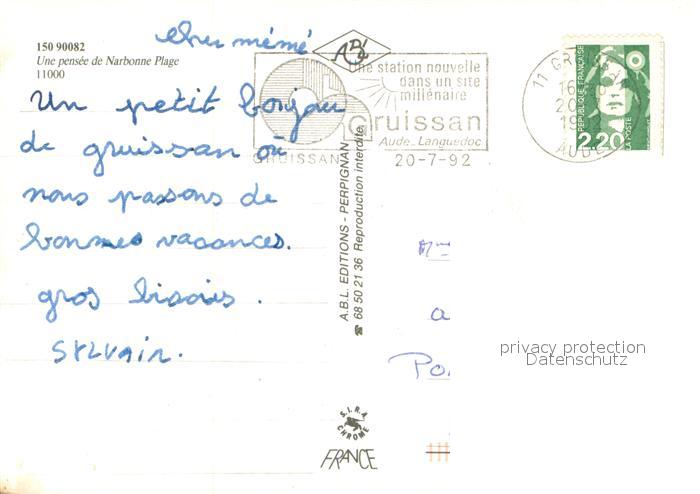 150 90082
Une pensée de Narbonne Plage
11000
cher mémé
Un petit bonjou
de gruissan où
nous passons de
bonnes vacances.
gros bisois.
SYLVAIN.
ABL
Une station nouvelle
dans un site
millénaire
Gruissan
Aude_Languedoc
GRUISSAN
20-7-92
11 GR
16
20
19
AUDE
REPUBLIQUE FRANÇAISE
2,20
LA POSTE
A.B.L. EDITIONS - PERPIGNAN
☎ 68 50 21 36 Reproduction interdite
Mme
a
Po
privacy protection
Datenschutz
S.I.R.A.
CHROME
FRANCE